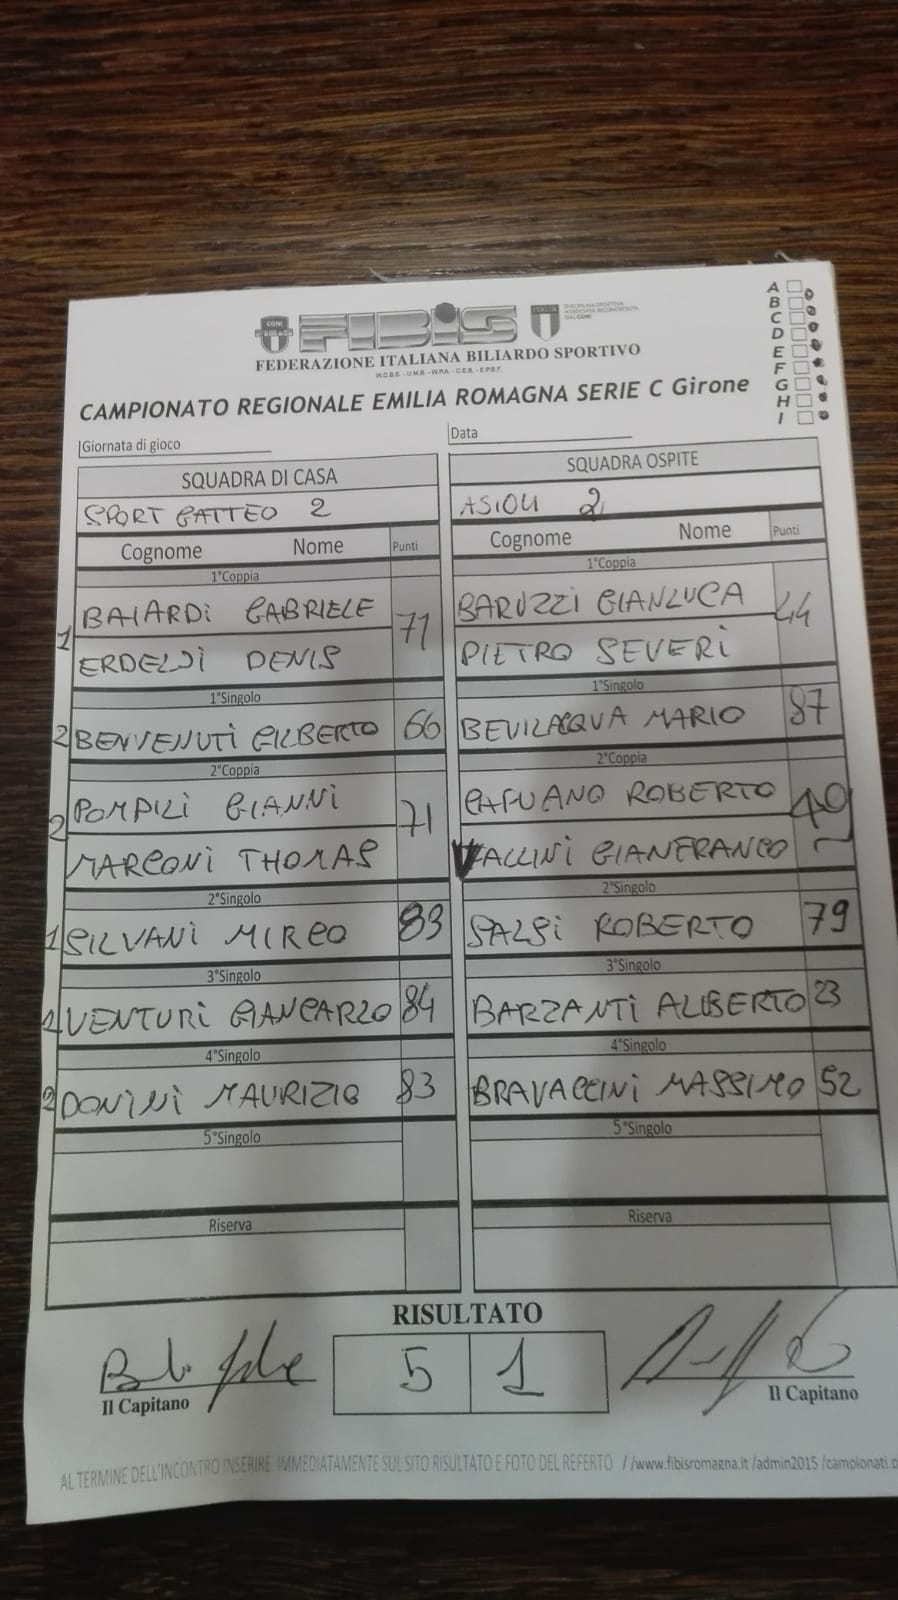 CONI
FIBIS
ITALIA
FEDERAZIONE ITALIANA BILIARDO SPORTIVO
CAMPIONATO REGIONALE EMILIA ROMAGNA SERIE C Girone
A
B
C
D
E
F
G
H
I
Giornata di gioco
Data
SQUADRA DI CASA
SPORT GATTEO 2
Cognome Nome Punti
1°Coppia
1 BAIARDi GABRIELE 71
DENIS
1°Singolo
2 BENVENUTi GILBERTO 66
2°Coppia
2 POMPILi GIANNI 71
MARCONi THOMAS
2°Singolo
1 SILVANi MIRCO 83
3°Singolo
VENTURi GIANCARLO 84
4°Singolo
2 DONiNi MAURIZIO 83
5°Singolo
Riserva
SQUADRA OSPITE
2
Cognome Nome Punti
1°Coppia
BARUZZI GIANLUCA 44
PIETRO SEVERi
1°Singolo
BEVILACQUA MARIO 87
2°Coppia
CAPUANO ROBERTO 49
VALLINi GIANFRANCO
2°Singolo
SALSi ROBERTO 79
3°Singolo
BARZANTi ALIBERTO 23
4°Singolo
BRAVACCINi MASSIMO 52
5°Singolo
Riserva
RISULTATO
5 1
Il Capitano
Il Capitano
AL TERMINE DELL'INCONTRO INSERIRE IMMEDIATAMENTE SUL SITO RISULTATO E FOTO DEL REFERTO / /www.fibisromagna.it /admin2015 /campionati.